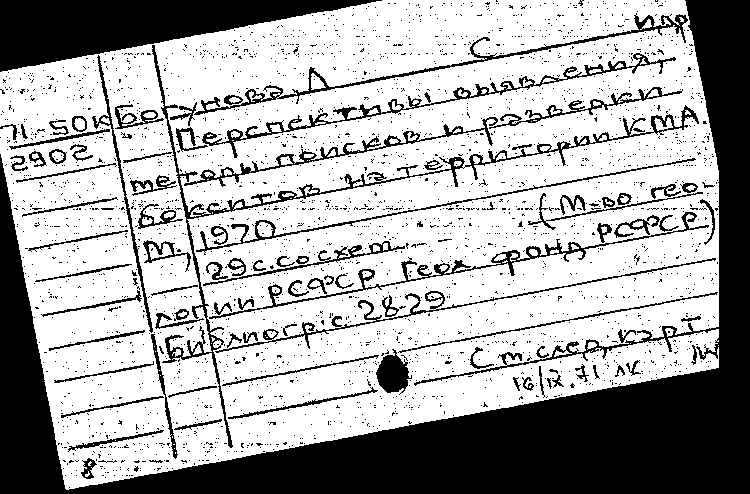 С
71-50к Богунова, Л
2902 Перспективы выявления,
методы поисков и разведки
бокситов на территории КМА.
М., 1970
29 с. со схем (М-во гео-
логии РСФСР. Геол фонд РСФСР)
Библиогр: с. 28-29
См. след, карт
16/IX.71 ЛК
8